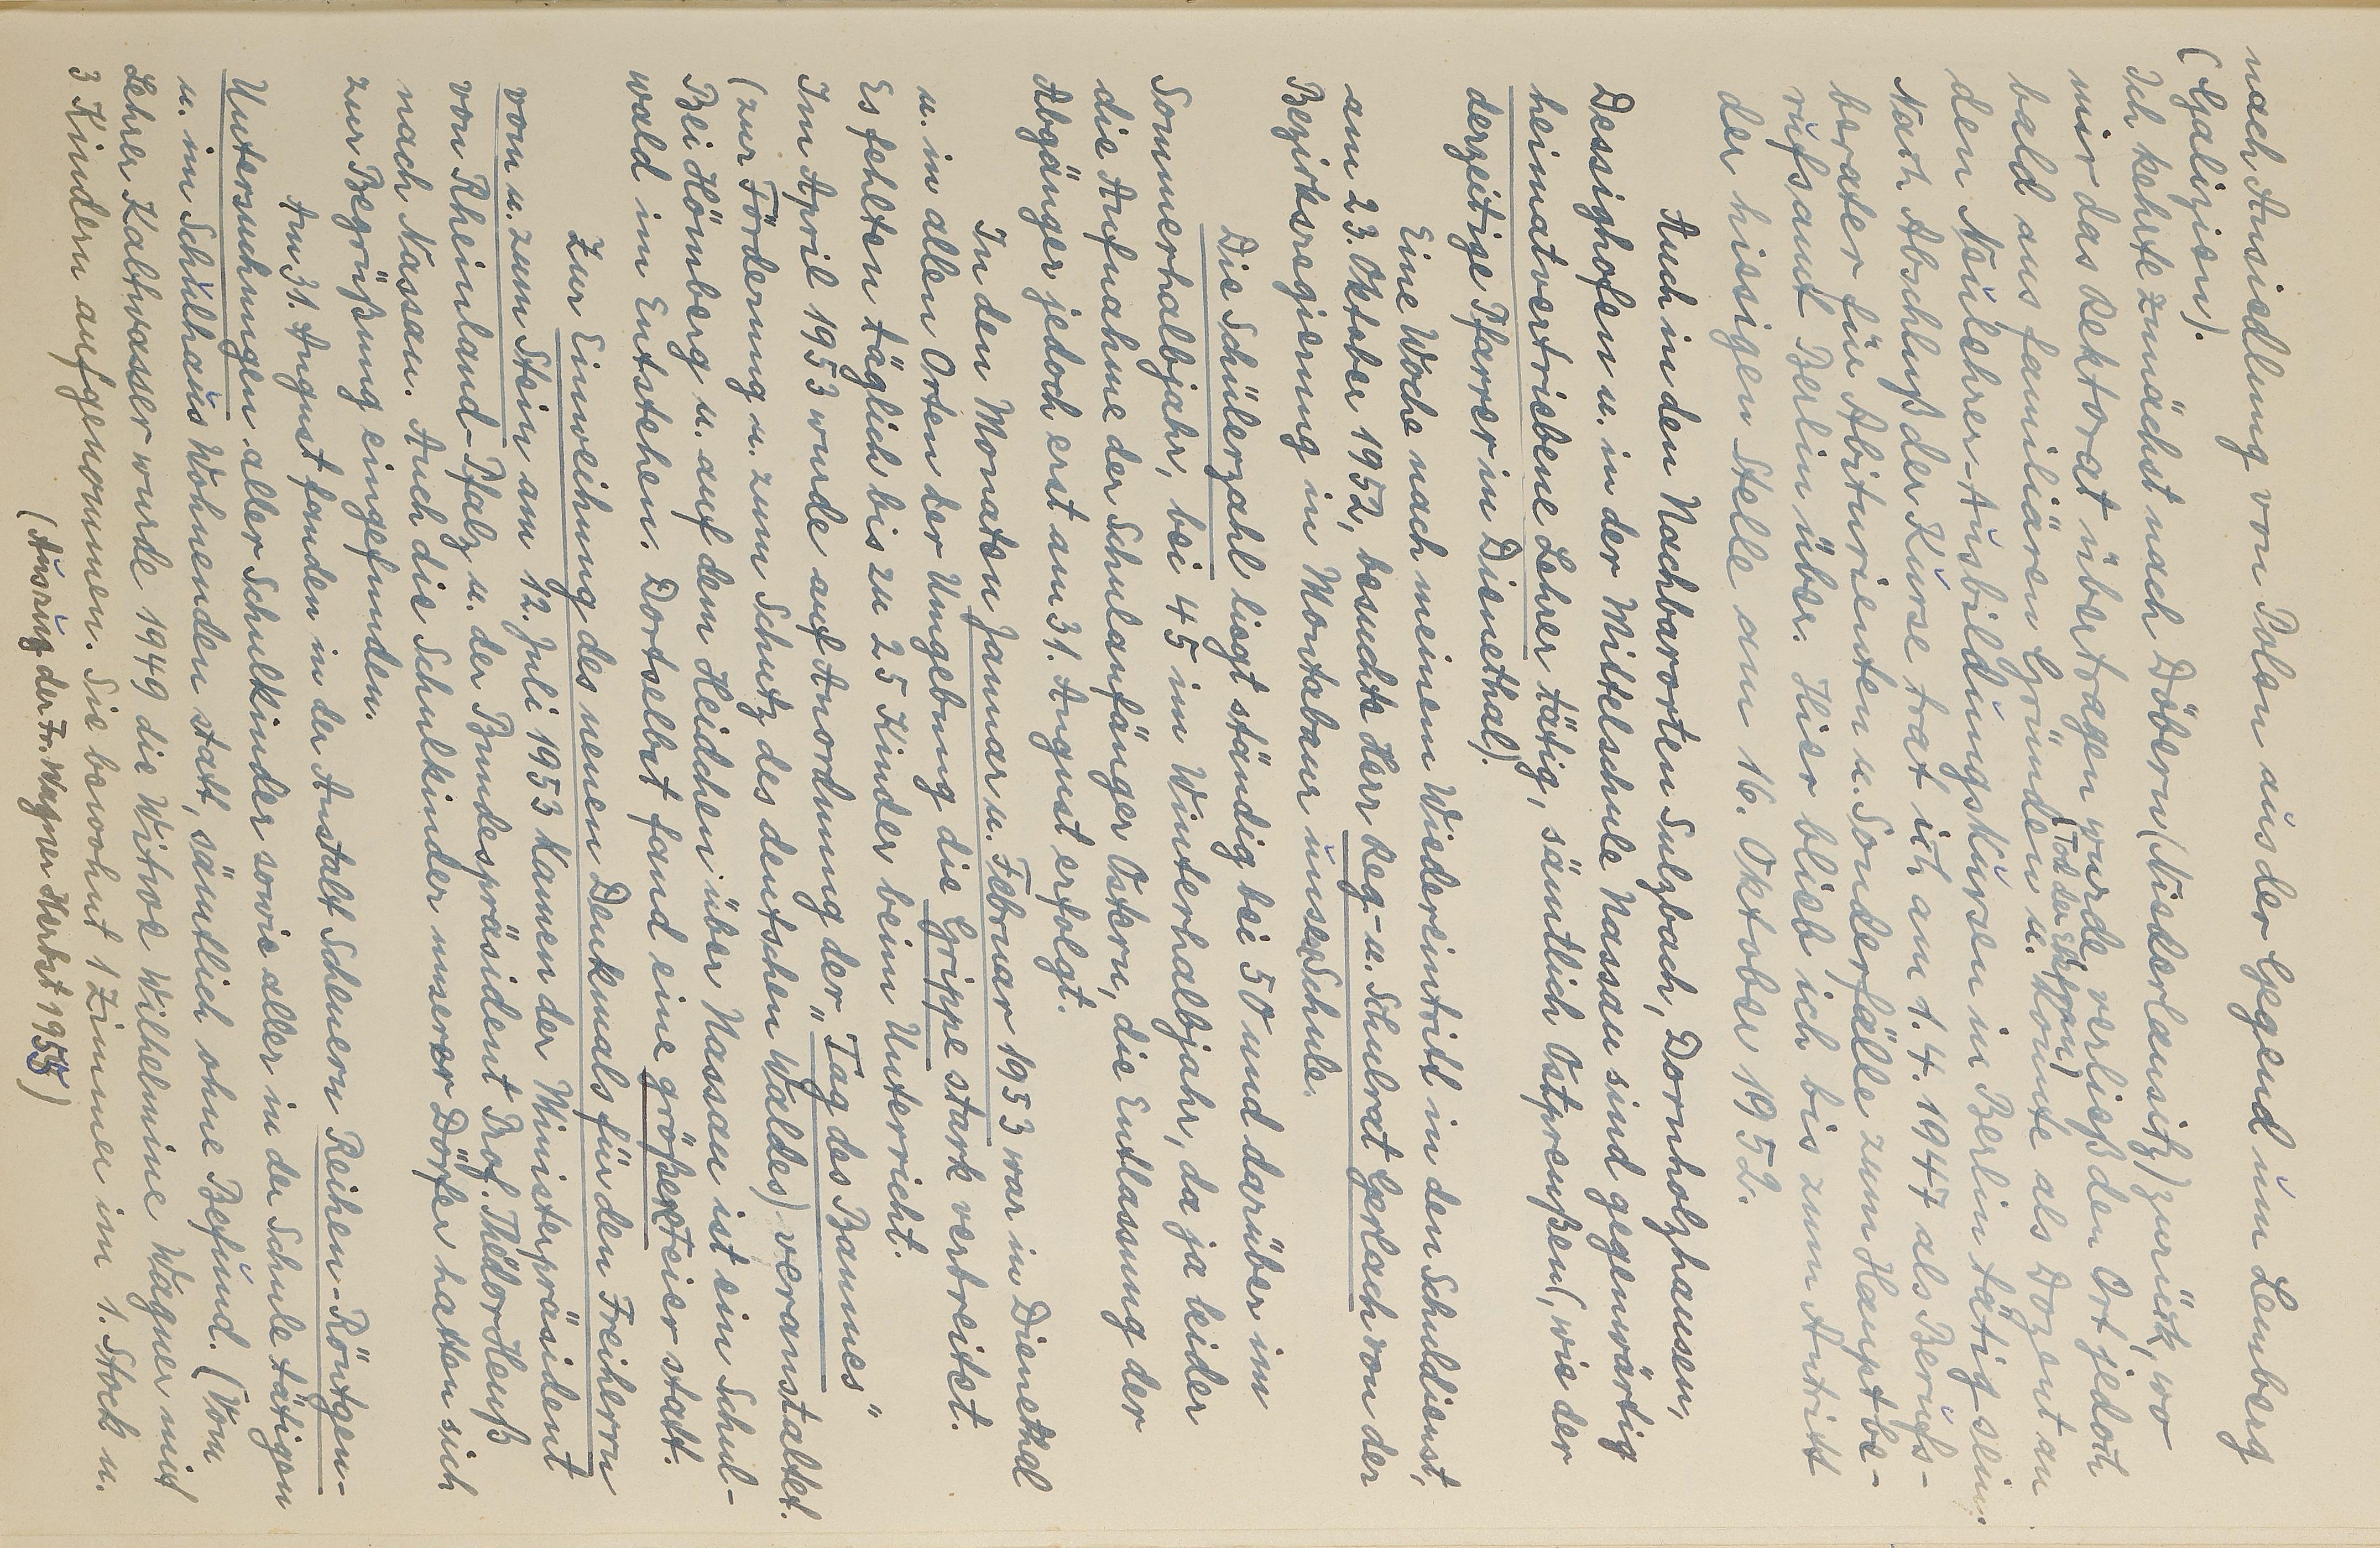 nach Ansiedlung von Polen aus der Gegend um Lemberg
(Galizien).
Ich kehrte zunächst nach Döbern (Niederlausitz) zurück, wo
mir das Rektorat übertragen wurde, verließ den Ort jedoch
(Tod der Ehefrau)
bald aus familiären Gründen u. konnte als Dozent an
den Neulehrer-Ausbildungskursen in Berlin tätig sein.
Nach Abschluß der Kurse trat ich am 1. 4. 1947 als Berufs-
berater für Abiturienten u. Sonderfälle zum Hauptbe-
rufsamt Berlin über. Hier blieb ich bis zum Antritt
der hiesigen Stelle am 16. Oktober 1952.
Auch in den Nachbarorten Sulzbach, Dornholzhausen,
Dessighofen u. in der Mittelschule Nassau sind gegenwärtig
heimatvertriebene Lehrer tätig, sämtlich Ostpreußen (, wie der
derzeitige Pfarrer in Dienethal).
Eine Woche nach meinem Wiedereintritt in den Schuldienst,
am 23. Oktober 1952, besuchte Herr Reg.- u. Schulrat Gerlach von der
Bezirksregierung in Montabaur unsere Schule.
Die Schülerzahl liegt ständig bei 50 und darüber im
Sommerhalbjahr, bei 45 im Winterhalbjahr, da ja leider
die Aufnahme der Schulanfänger Ostern, die Entlassung der
Abgänger jedoch erst am 31. August erfolgt.
In den Monaten Januar u. Februar 1953 war in Dienethal
u. in allen Orten der Umgebung die Grippe stark verbreitet.
Es fehlten täglich bis zu 25 Kinder beim Unterricht.
Im April 1953 wurde auf Anordnung der „Tag des Baumes"
(zur Förderung u. zum Schutz des deutschen Waldes) veranstaltet.
Bei Hömberg u. auf dem Heidchen über Nassau ist ein Schul-
wald im Entstehen. Dortselbst fand eine größere Feier statt.
Zur Einweihung des neuen Denkmals für den Freiherrn
vom u. zum Stein am 12. Juli 1953 kamen der Ministerpräsident
von Rheinland-Pfalz u. der Bundespräsident Prof. Theodor Heuß
nach Nassau. Auch die Schulkinder unserer Dörfer hatten sich
zur Begrüßung eingefunden.
Am 31. August fanden in der Anstalt Scheuern Reihen-Röntgen-
Untersuchungen aller Schulkinder sowie aller in der Schule tätigen
u. im Schulhaus Wohnenden statt, sämtlich ohne Befund. (Vom
Lehrer Kaltwasser wurde 1949 die Witwe Wilhelmine Wagner mit
3 Kindern aufgenommen. Sie bewohnt 1 Zimmer im 1. Stock u.
(Auszug der Fr. Wagner Herbst 1955)